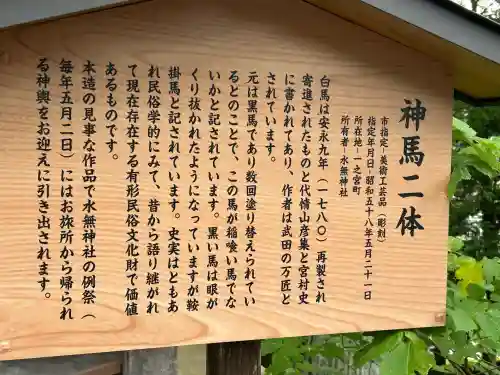 神馬二体
市指定-美術工芸品(彫刻)
指定年月日-昭和五十八年五月二十一日
所在地-一之宮町
所有者-水無神社
白馬は安永九年(一七八〇)再製され
寄進されたものと代情山彦集と宮村史
に書かれてあり、作者は武田の万匠と
されています。
元は黒馬であり数回塗り替えられてい
るとのことで、この馬が稲喰い馬でな
いかと記されています。黒い馬は眼が
くり抜かれたようになっていますが鞍
掛馬と記されています。史実はともあ
れ民俗学的にみて、昔から語り継がれ
て現在存在する有形民俗文化財で価値
あるものです。
本造の見事な作品で水無神社の例祭(
毎年五月二日)にはお旅所から帰られ
る神輿をお迎えに引き出されます。